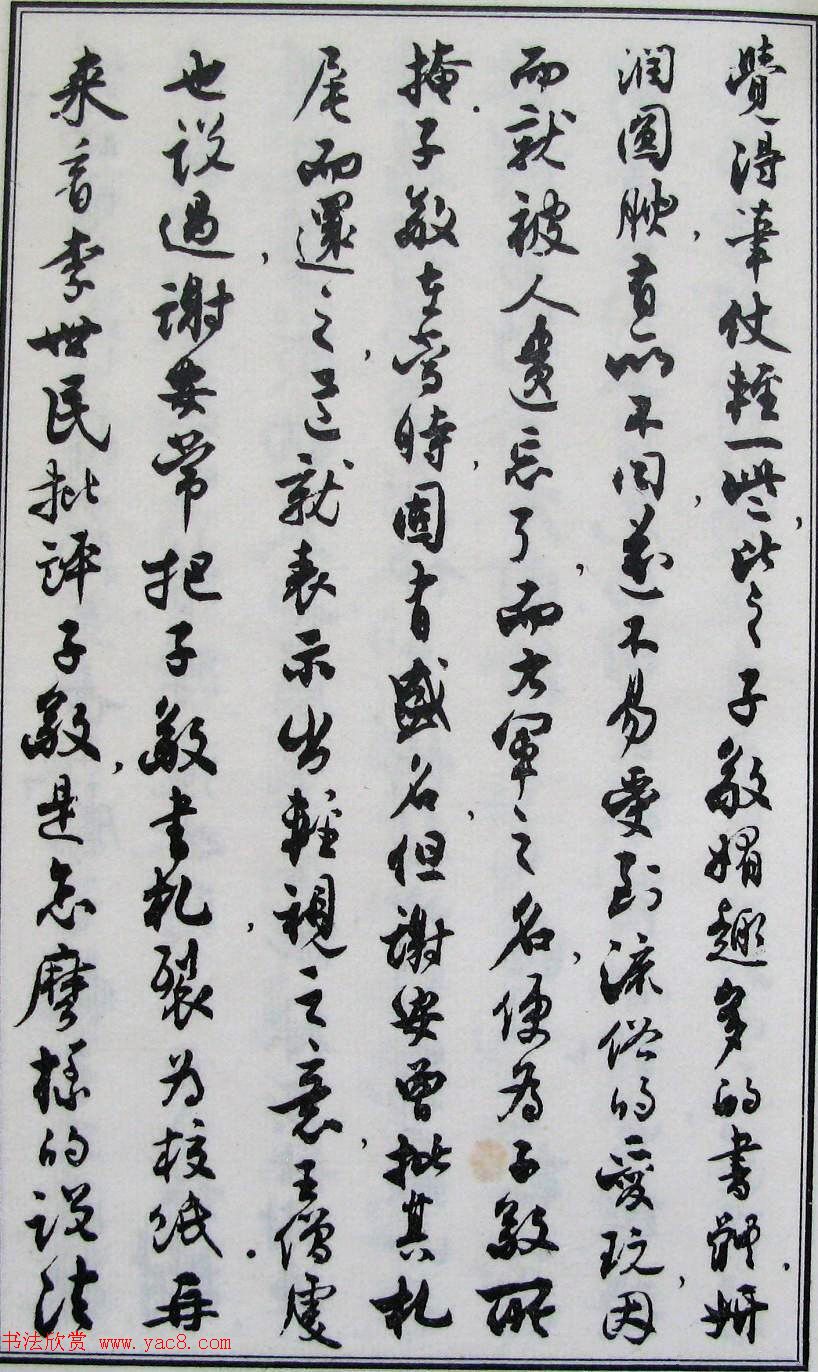 覺得葦仗輕一些,比之子敬媚趣多的書體妍
潤圓腴,有所不同,並不易受到流俗的愛玩,因
而就被人遺忘了,而右軍之名,便為子敬所
掩.子敬在當時,固有盛名,但謝安曾批其札
尾而還之,這就表示出輕視之意,王僧虔
也說過,謝安常把子敬書札,裂為校紙.再
來看李世民批評子敬,是怎麼樣的說法
书法欣赏 www.yac8.com